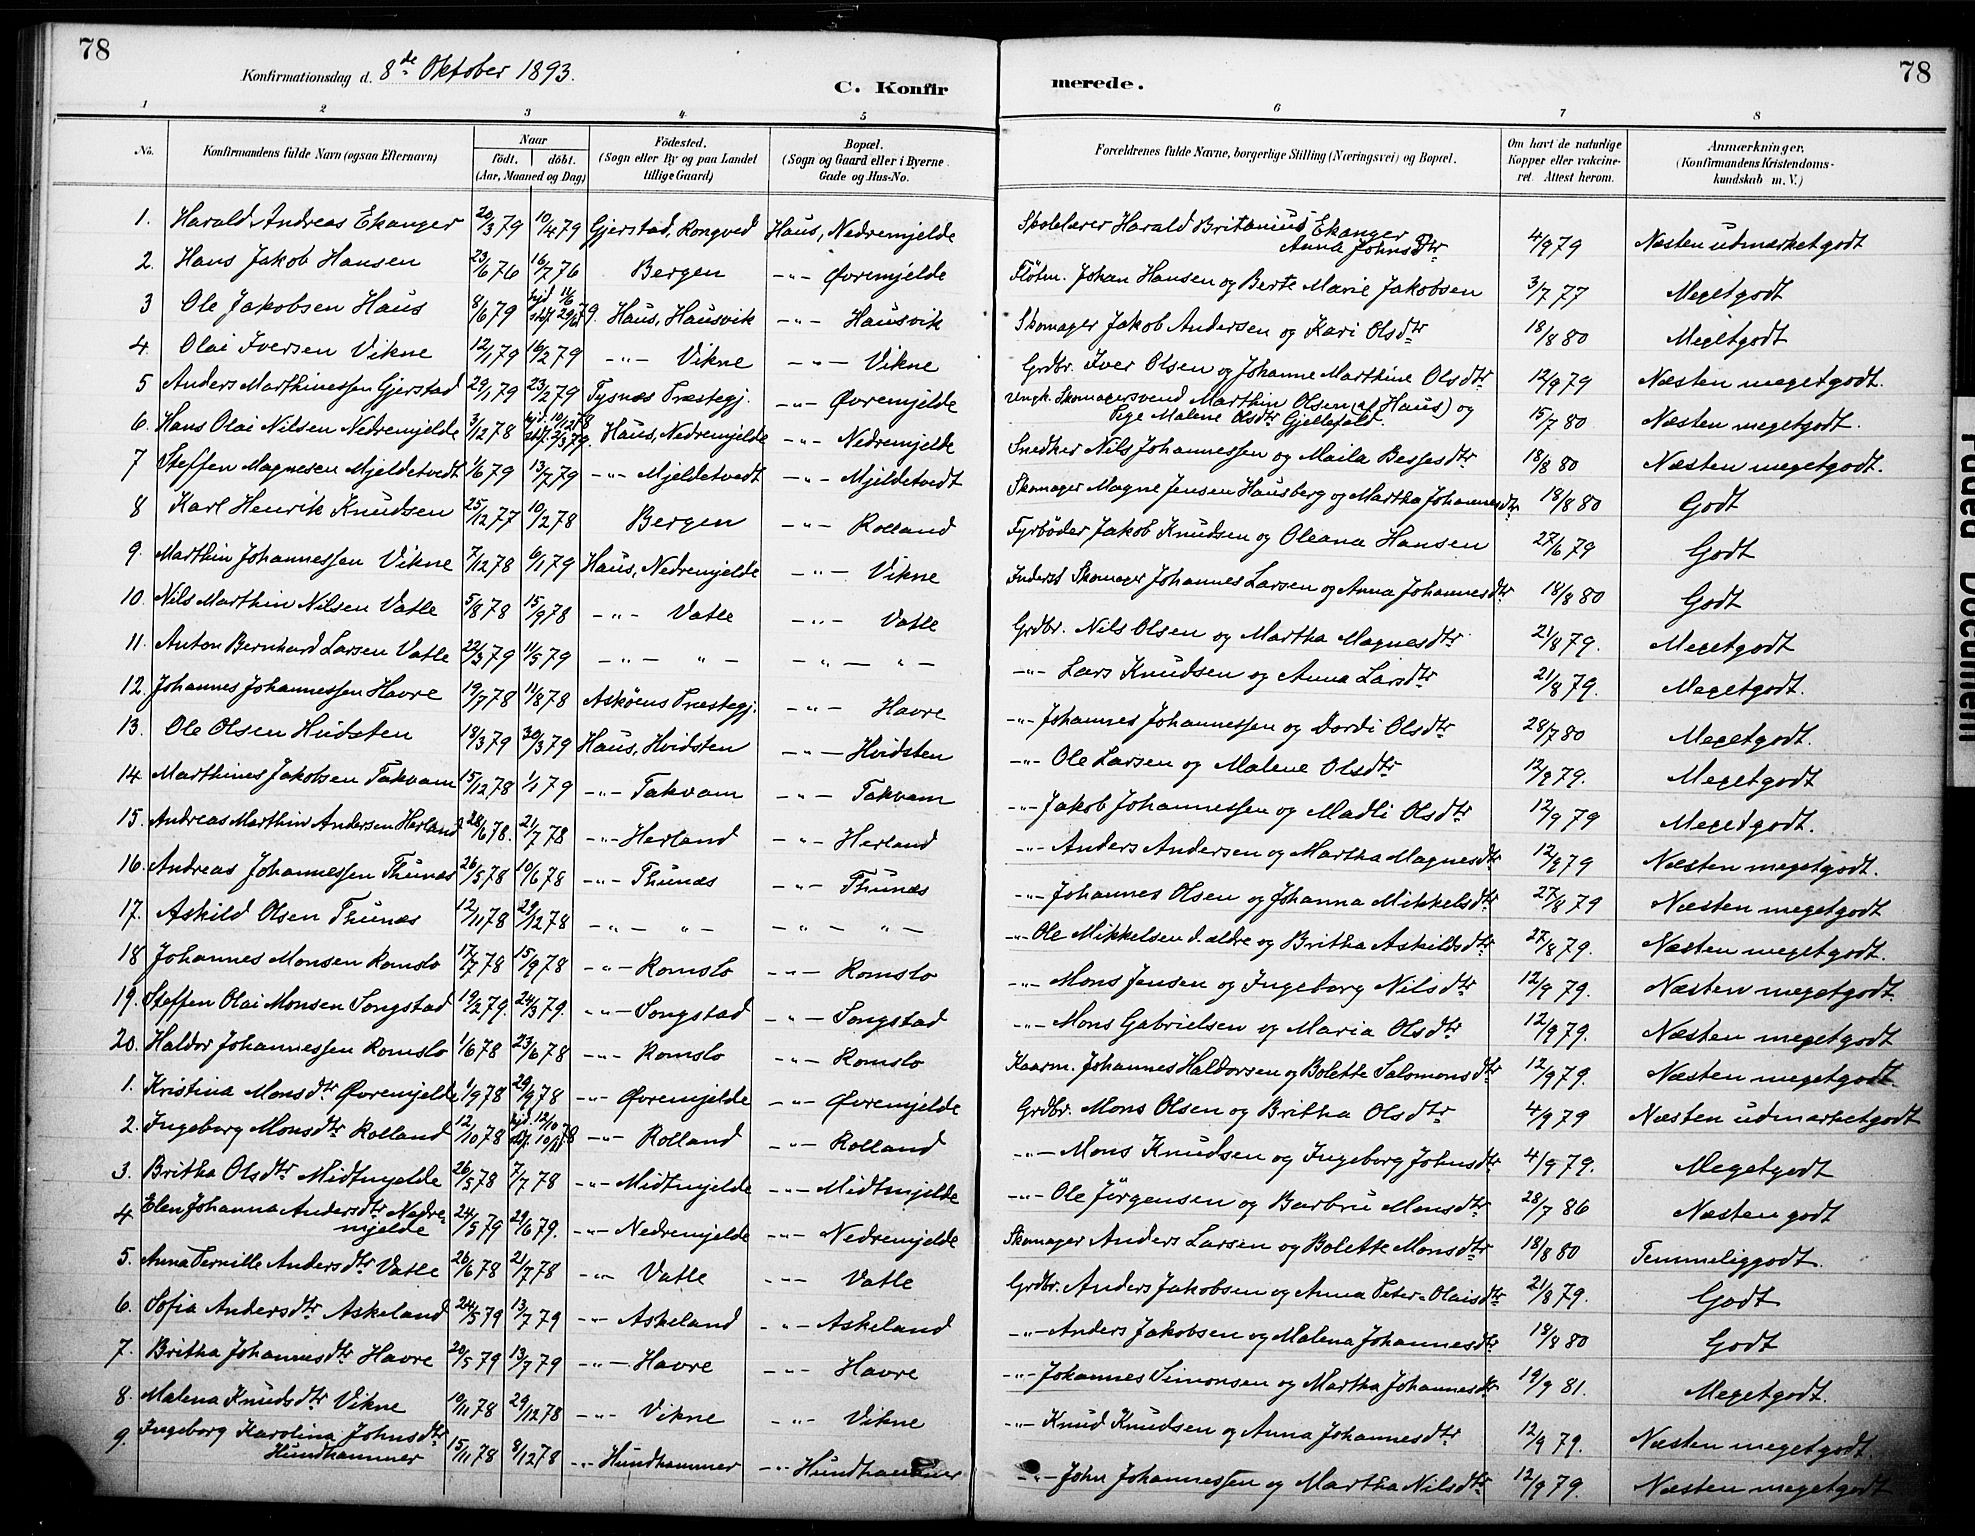 78
Konfirmationsdag d. 8de Oktober 1893.
C. Konfir
merede.
78
1 2 3 4 5 6 7 8
No. Konfirmandens fulde Navn (ogsaa Efternavn) Naar födt. döbt. (Aar, Maaned og Dag) Födested. (Sogn eller By og paa Landet tillige Gaard) Bopæl. (Sogn og Gaard eller i Byerne Gade og Hus-No. Forældrenes fulde Navne, borgerlige Stilling (Næringsvei) og Bopæl. Om havt de naturlige Kopper eller vaccineret. Attest herom. Anmærkninger. (Konfirmandens Kristendomskundskab m. V.)
1. Harald Andreas Ekanger 20/3 79 10/4 79 Gjerstad, Rongved Haus, Nedremjelde Skolelærer Harald Britanius Ekanger Anna Johnsdtr 4/9 79 Næsten udmærketgodt
2. Hans Jakob Hansen 23/6 76 16/7 76 Bergen -"- Øvremjelde Flötm. Johan Hansen og Berte Marie Jakobsen 3/7 77 Megetgodt
3 Ole Jakobsen Haus 8/6 79 hjd 11/6 stdf. 29/6 79. Haus, Hausvik -"- Hausvik Skomager Jakob Andersen og Kari Olsdtr 18/8 80 Megetgodt
4. Olai Iversen Vikne 12/1 79 16/2 79 -"- Vikne -"- Vikne Grdbr. Iver Olsen og Johanne Marthine Olsdtr 12/9 79 Næsten megetgodt.
5 Anders Marthinessen Gjerstad 29/1 79 23/2 79 Tysnæs Præstegj. -"- Øvremjelde Skomagersvend Marthin Olsen (af Haus) og Pige Malene Olsdtr Gjellefald. 15/7 80 Næsten megetgodt.
6. Hans Olai Nilsen Nedremjelde 3/12 78 hjd. 10/12 78 stdf. 2/3 79. Haus, Nedremjelde -"- Nedremjelde Snedker Nils Johannessen og Maila Bessesdtr 18/8 80 Næsten megetgodt.
7 Steffen Magnesen Mjeldetvedt 1/6 79 13/7 79 -"- Mjeldetvedt -"- Mjeldetvedt Skomager Magne Jensen Hausberg og Martha Johannesdtr 18/8 80 Godt
8 Karl Henrik Knudsen 25/12 77 10/2 78 Bergen -"- Rolland Fyrböder Jakob Knudsen og Oleana Hansen 27/6 79 Godt
9. Marthin Johannessen Vikne 7/12 78 6/1 79 Haus, Nedremjelde -"- Vikne Inderst Skomager Johannes Larsen og Anna Johannesdtr 18/8 80 Godt
10. Nils Marthin Nilsen Vatle 5/8 78 15/9 78 -"- Vatle -"- Vatle Grdbr. Nils Olsen og Martha Magnesdtr 21/8 79. Megetgodt
11. Anton Bernhard Larsen Vatle 22/3 79 11/5 79 -"- "- -"- "- -"- Lars Knudsen og Anna Larsdtr 21/8 79. Megetgodt.
12. Johannes Johannessen Havre 19/7 78 11/8 78 Askøens Præstegj. -"- Havre -"- Johannes Johannessen og Dordi Olsdtr 28/7 80 Megetgodt.
13. Ole Olsen Hvidsten 18/3 79 30/3 79 Haus, Hvidsten -"- Hvidsten -"- Ole Larsen og Malene Olsdtr 12/9 79. Megetgodt
14. Marthines Jakobsen Takvam 15/12 78 1/1 79 -"- Takvam -"- Takvam -"- Jakob Johannessen og Madli Olsdtr 12/9 79 Megetgodt.
15. Andreas Marthin Andersen Herland 28/6 78. 21/7 78 -"- Herland -"- Herland -"- Anders Andersen og Martha Magnesdtr 12/9 79 Næsten megetgodt.
16. Andreas Johannessen Thunæs 26/5 78 10/6 78 -"- Thunæs -"- Thunæs -"- Johannes Olsen og Johanna Mikkelsdtr 27/8 79 Næsten megetgodt
17. Askild Olsen Thunæs 12/11 78 29/12 78 -"- "- -"- "- -"- Ole Mikkelsen d. ældre og Britha Askildsdtr 27/8 79. Næsten megetgodt.
18 Johannes Monsen Romslo 17/7 78 15/9 78 -"- Romslo -"- Romslo -"- Mons Jensen og Ingeborg Nilsdtr 12/9 79. Næsten megetgodt.
19. Steffen Olai Monsen Songstad 19/2 79. 24/3 79. -"- Songstad -"- Songstad -"- Mons Gabrielsen og Maria Olsdtr 12/9 79. Næsten megetgodt
20. Haldor Johannessen Romslo 1/6 78 23/6 78 -"- Romslo -"- Romslo Kaarm. Johannes Haldorsen og Bolette Salomonsdtr 12/9 79. Næsten megetgodt.
1. Kristina Monsdtr Øvremjelde 1/9 78 29/9 78 -"- Øvremjelde -"- Øvremjelde Grdbr. Mons Olsen og Britha Olsdtr 4/9 79 Næsten udmærketgodt
2. Ingeborg Monsdtr Rolland 12/10 78 hjd. 12/10 78 -"- Rolland -"- Rolland -"- Mons Knudsen og Ingeborg Johnsdtr 4/9 79. Megetgodt
3. Britha Olsdtr Midtmjelde 26/5 78 7/7 78 -"- Midtmjelde -"- Midtmjelde -"- Ole Jörgensen og Barbru Monsdtr 28/7 86 Næsten godt
4 Elen Johanna Andersdtr Nedremjelde 24/5 79 29/6 79. -"- Nedremjelde -"- Nedremjelde Skomager Anders Larsen og Bolette Monsdtr 18/8 80 Temmeliggodt.
5. Anna Pernille Andersdtr Vatle 26/6 78 21/7 78 -"- Vatle -"- Vatle Grdbr. Anders Jakobsen og Anna Peter-Olaisdtr 21/8 79. Godt
6. Sofia Andersdtr Askeland 24/5 79 13/7 79 -"- Askeland -"- Askeland -"- Anders Jakobsen og Malena Johannesdtr 18/8 80 Godt
7. Britha Johannesdtr Havre 20/5 79 13/7 79 -"- Havre -"- Havre -"- Johannes Simonsen og Martha Johannesdtr 19/9 81. Megetgodt.
8. Malena Knudsdtr Vikne 19/11 78 29/12 78 -"- Vikne -"- Vikne -"- Knud Knudsen og Anna Johannesdtr 12/9 79. Næsten megetgodt.
9. Ingeborg Karolina Johnsdtr Hundhammer 15/11 78 8/12 78 -"- Hundhammer -"- Hundhammer -"- John Johannessen og Martha Nilsdtr 12/9 79. Næsten megetgodt
Faded Document